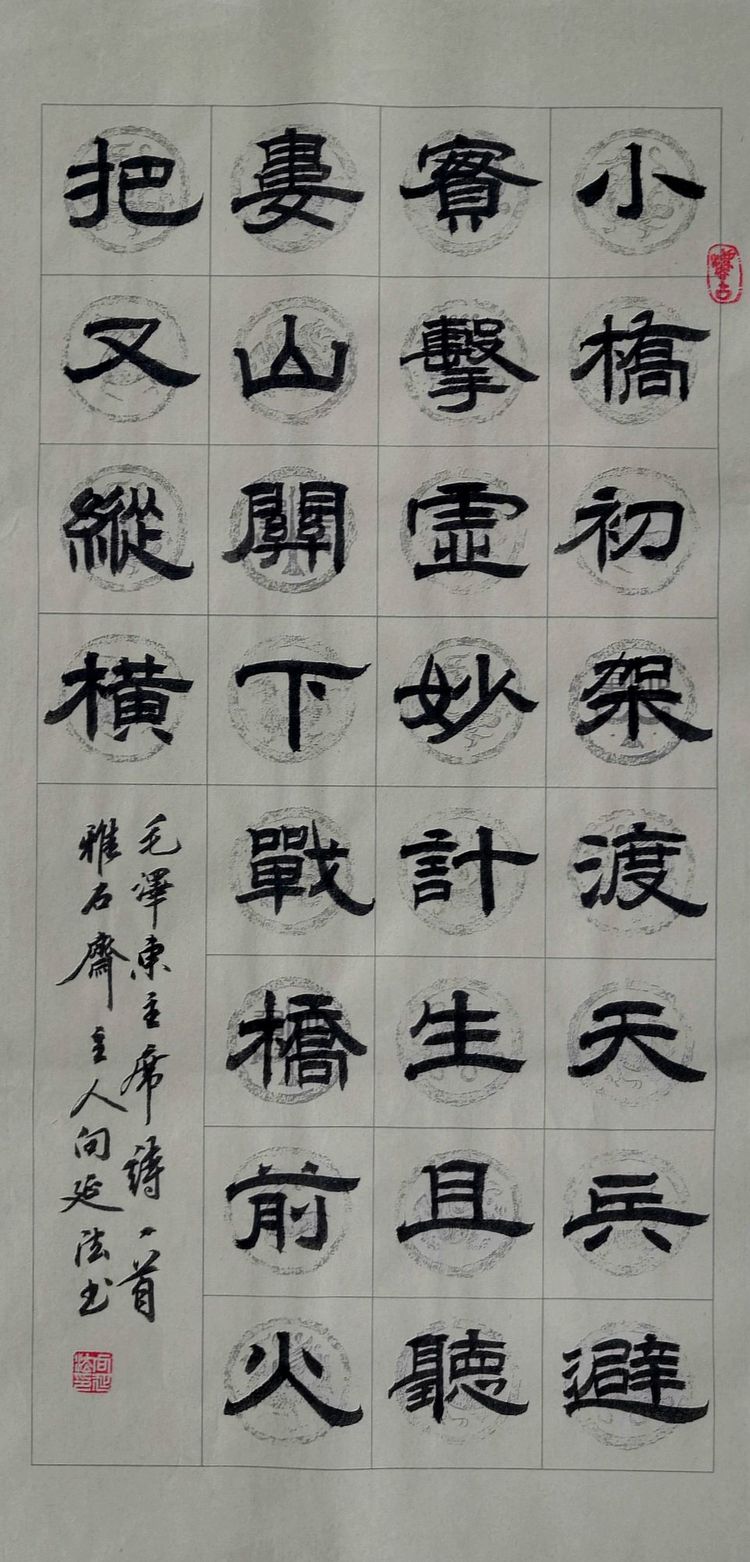 小橋初架渡天兵避
實擊虛妙計生且聽
婁山關下戰橋前火
把又縱横
毛澤東主席詩一首
雅石齋主人向延法书